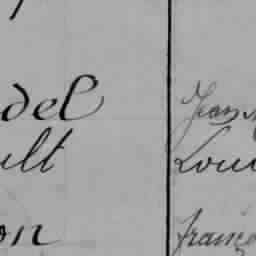 del Jean
ult Loui
on franço